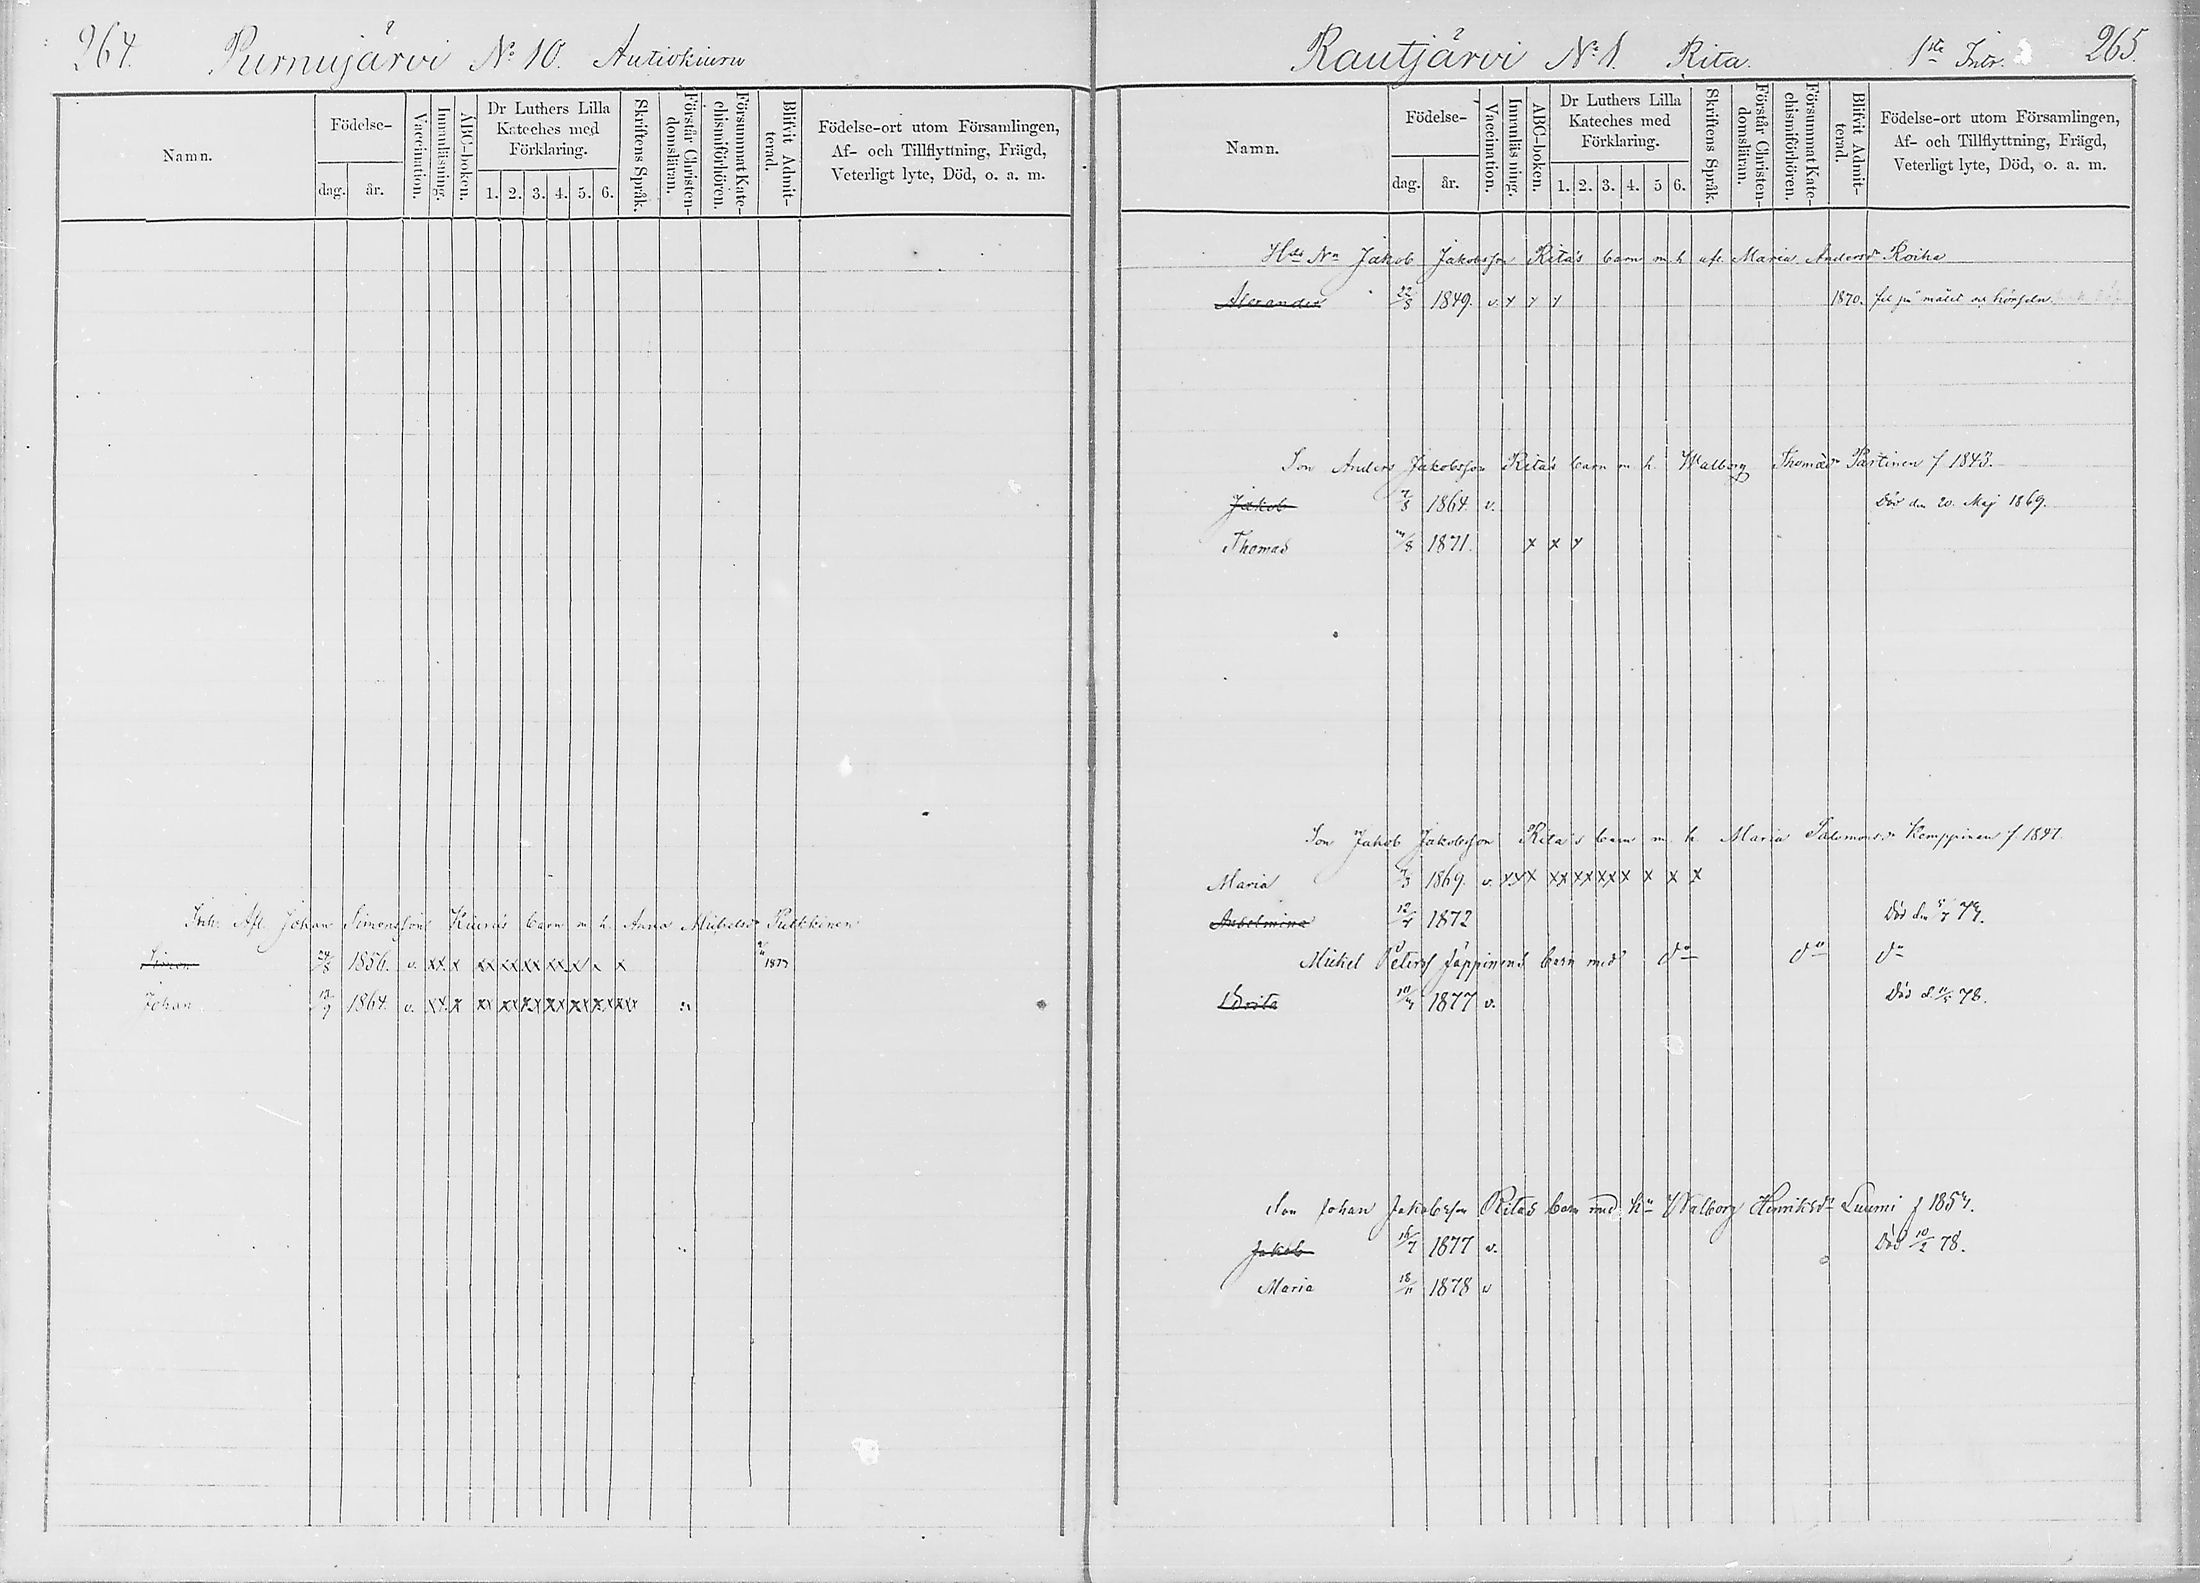 264. Purnujärvi No 10. Antiokiuru
Namn.
Födelse-
dag. år.
Vaccination.
Innanläsning.
ABC-boken.
Dr Luthers Lilla
Kateches med
Förklaring.
1. 2. 3. 4. 5. 6.
Skriftens Språk.
Förstår Christen-
domsläran.
Försummat Kate-
chismiförhören.
Blifvit Admit-
terad.
Födelse-ort utom Församlingen,
Af- och Tillflyttning, Frägd,
Veterligt lyte, Död, o. a. m.
Inh. Afl. Johan Simonsson Kiurus barn m. h. Anna Michelsdr Pulkkinen
Simon 1856. v. xx x xx xx xx xx x x x 1877
Johan 1864. v. xx x xx xx xx xx xx xx xx
Rautjärvi No 1. Rita. 1sta Intr. 265.
Namn.
Födelse-
dag. år.
Vaccination.
Innanläsning.
ABC-boken.
Dr Luthers Lilla
Kateches med
Förklaring.
1. 2. 3. 4. 5 6.
Skriftens Språk.
Förstår Christen-
domsläran.
Försummat Kate-
chismiförhören.
Blifvit Admit-
terad.
Födelse-ort utom Församlingen,
Af- och Tillflyttning, Frägd,
Veterligt lyte, Död, o. a. m.
Jakob Jakobsson Rita's barn m h afl. Maria Andersdr Roiha
Alexander 22/8 1849. v. x x x 1870.
Son Anders Jakobsson Rita's barn m h. Walborg Thomasdr Partinen f 1843.
Jakob 1864 v. Död den 20. Maj 1869.
Thomas 1871. x x x
Son Jakob Jakobsson Rita's barn m. h. Maria Salomonsdr Kemppinen f 1847
Maria 1869. v. x x x xx xx xx x x x x
Anselmina 1872 Död den
Michel Peters Jäppinens barn med do do do
Dorita 1877 v. Död d. 78.
Son Johan Jakobsson Ritas barn med hu Walborg Henriksdr Luumi f 1857.
Jakob 16/7 1877 v. Död 10/2 78.
Maria 18/11 1878 v